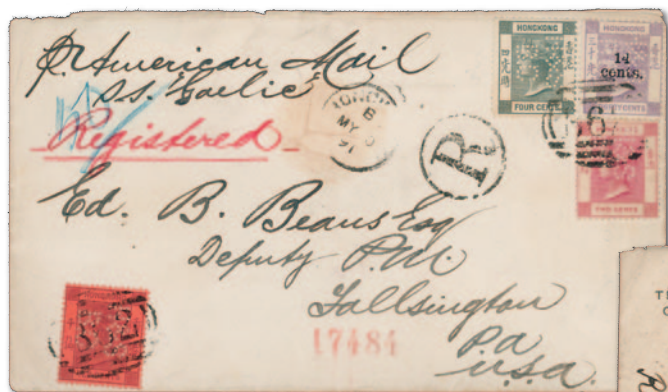 p. American Mail
S.S. Gaelic
Registered
HONGKONG
FOUR CENTS
HONGKONG
14
cents.
TWO CENTS
B
MY
91
R
Ed. B. Beans Esq
Deputy P.M.
Fallsington
Pa
U.S.A.
17484